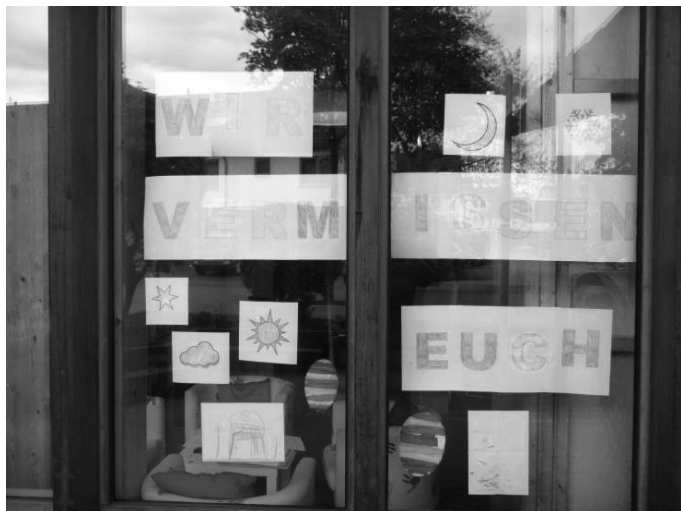 WIR
VERMISSEN
EUCH